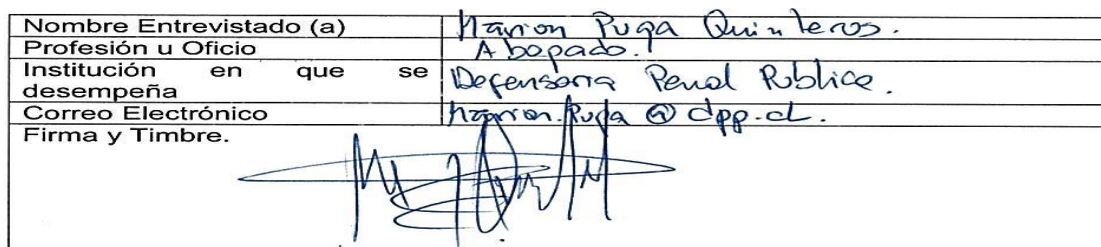 Nombre Entrevistado (a) Marion Puga Quinteros.
Profesión u Oficio Abogado.
Institución en que se desempeña Defensoria Penal Publica.
Correo Electrónico Marion.Puga @ dpp.cl.
Firma y Timbre.